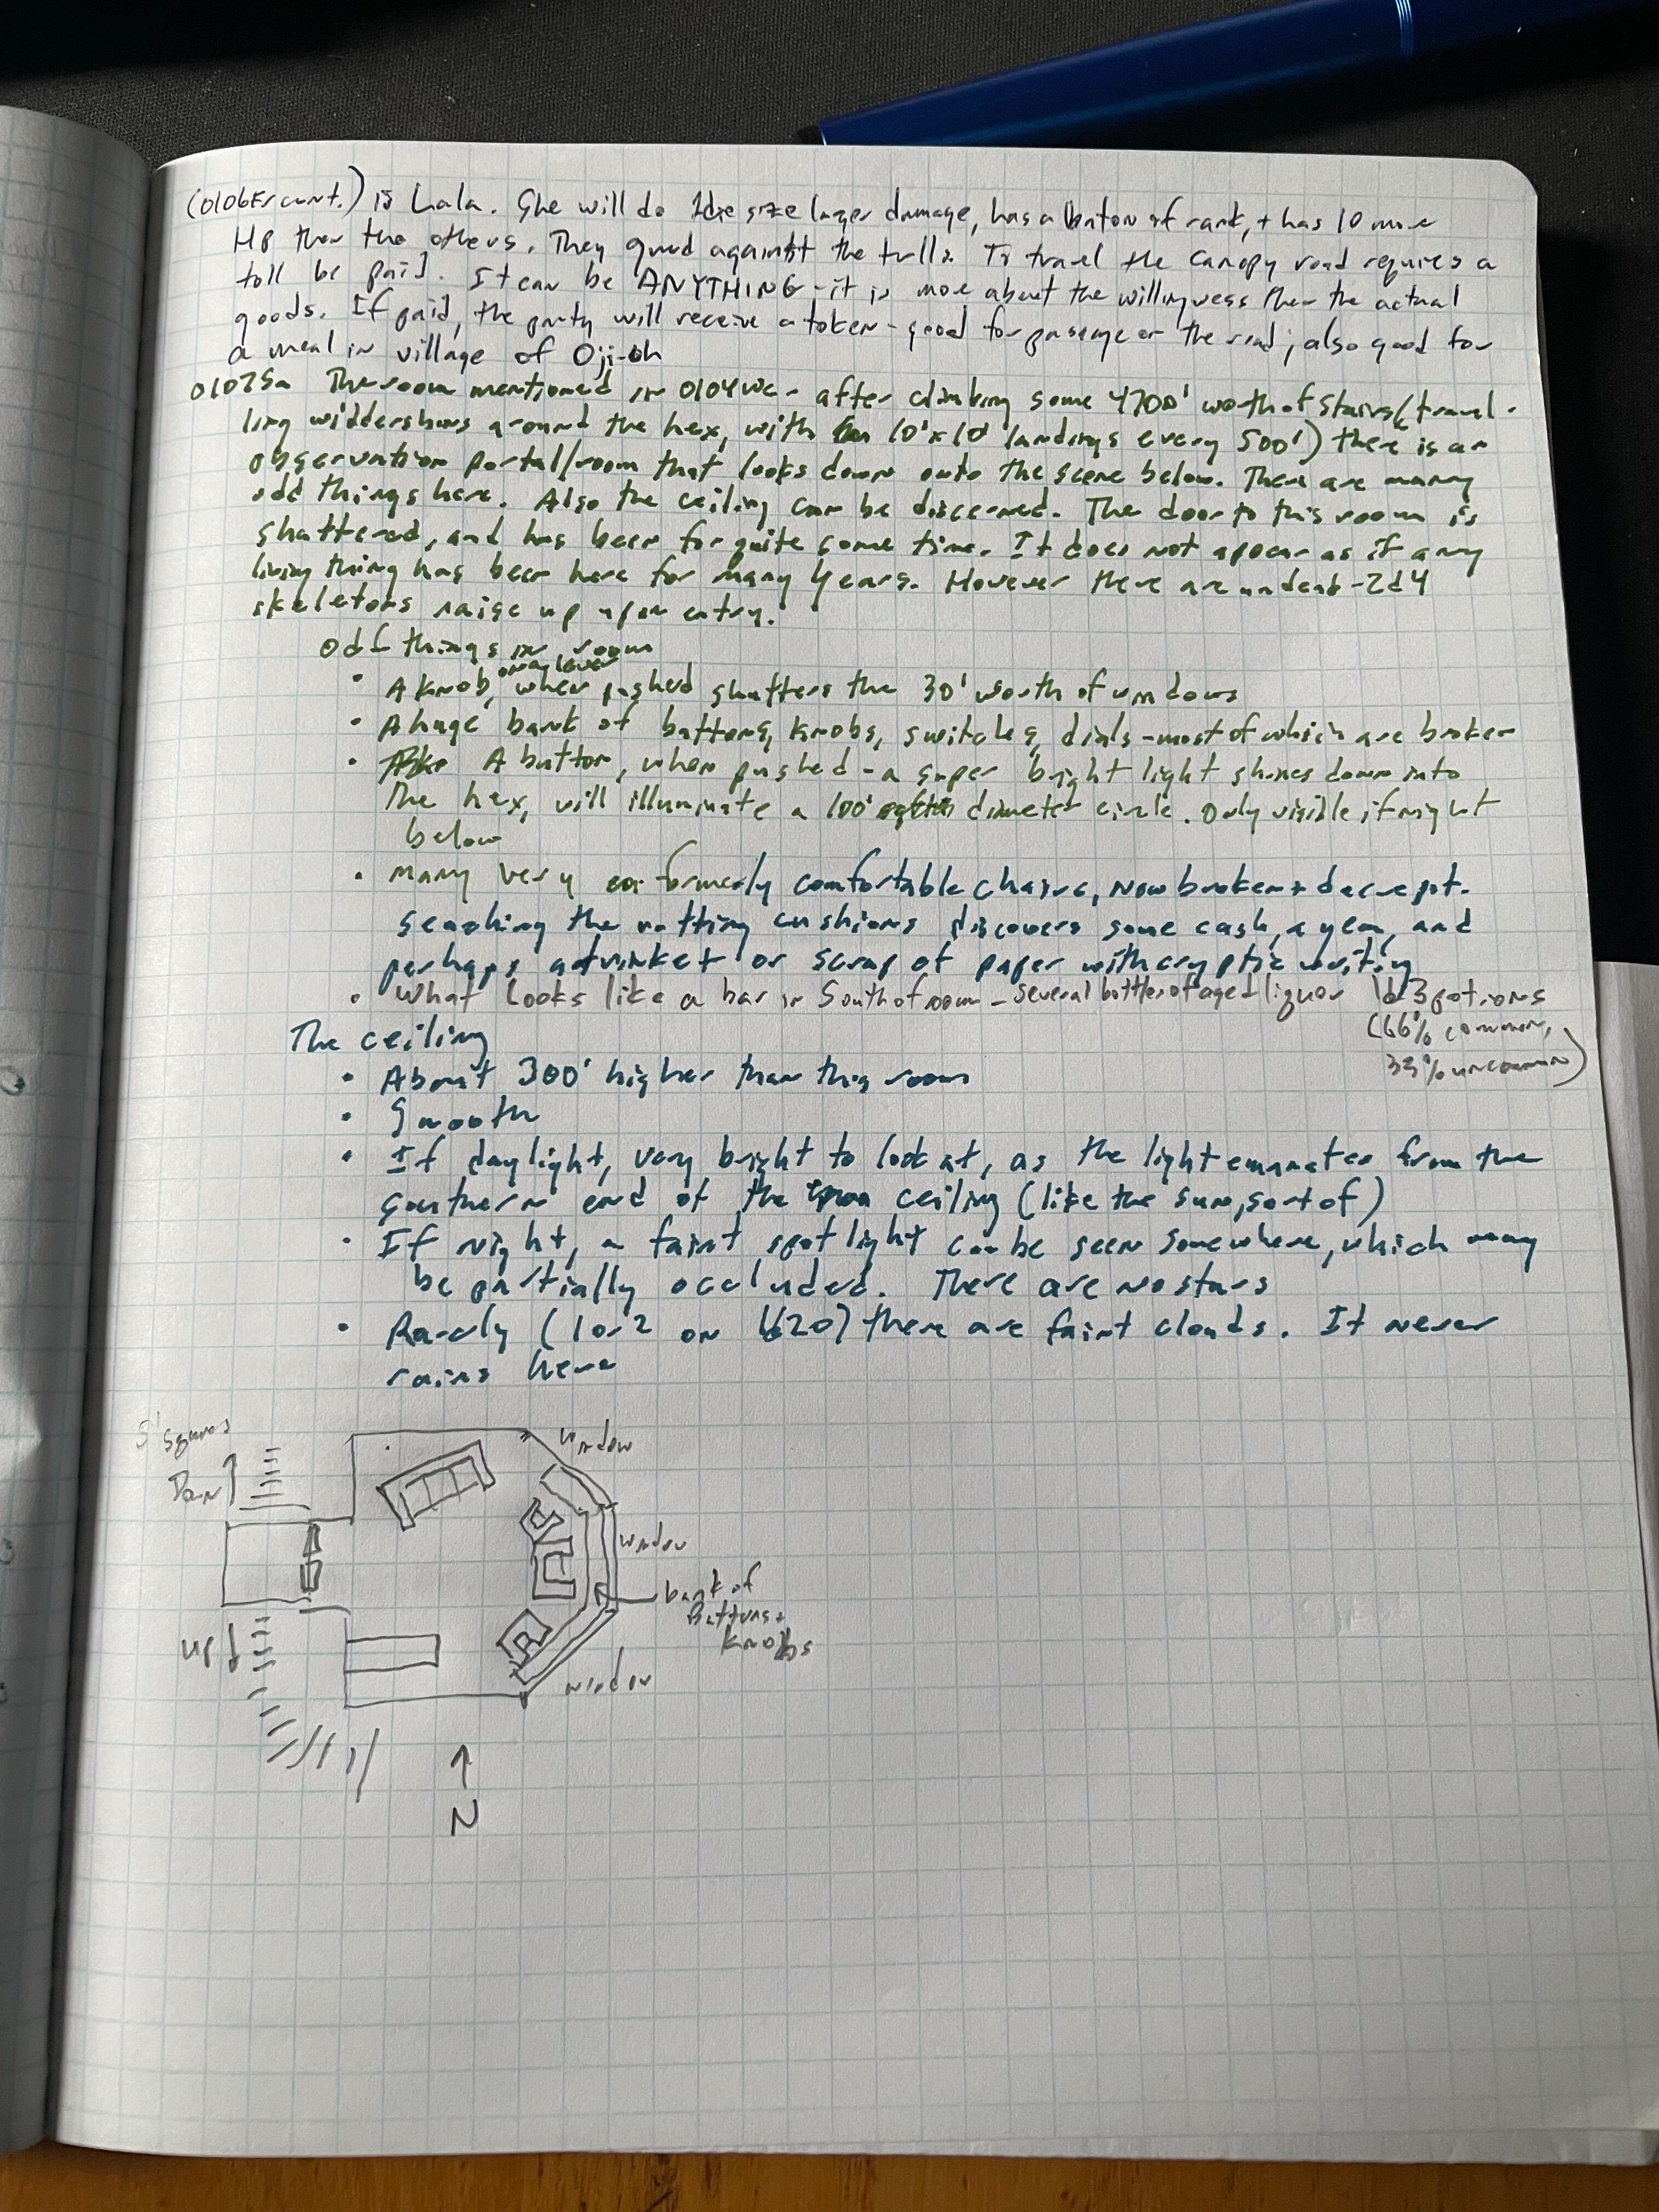 (0106Er cont.) is Lala. She will do 1die size larger damage, has a baton of rank, + has 10 more
HP than the others. They guard against the trolls. To travel the canopy road requires a
toll be paid. It can be ANYTHING - it is more about the willingness than the actual
goods. If paid, the party will receive a token - good for passage on the road; also good for
a meal in village of Oji-oh
0107Sa The room mentioned in 0104We - after climbing some 4700' worth of stairs (travel-
ling widdershins around the hex, with 10'x10' landings every 500') there is an
observation portal/room that looks down onto the scene below. There are many
odd things here. Also the ceiling can be discerned. The door to this room is
shattered, and has been for quite some time. It does not apear as if any
living thing has been here for many years. However there are undead - 2d4
skeletons raise up upon entry.
Odd things in room
• A knob, on a lever when pushed shutters the 30' worth of windows
• A huge bank of buttons, knobs, switches, dials - most of which are broken
• A button, when pushed - a super bright light shines down into
the hex, will illuminate a 100' diameter circle. Only visible if night
below
• Many very formerly comfortable chairs, now broken + decrepit.
Searching the rotting cushions discovers some cash, a gem, and
perhaps a trinket or scrap of paper with cryptic writing
• What looks like a bar in South of room - several bottles of aged liquor 1d3 potions
(66% common,
33% uncommon)
The ceiling
• About 300' higher than this room
• Smooth
• If daylight, very bright to look at, as the light emanates from the
southern end of the ceiling (like the sun, sort of)
• If night, a faint spotlight can be seen somewhere, which may
be partially occluded. There are no stars
• Rarely (1 or 2 on 1d20) there are faint clouds. It never
rains here
5' squares
window
Down
window
bank of
Buttons +
Knobs
UP
window
N